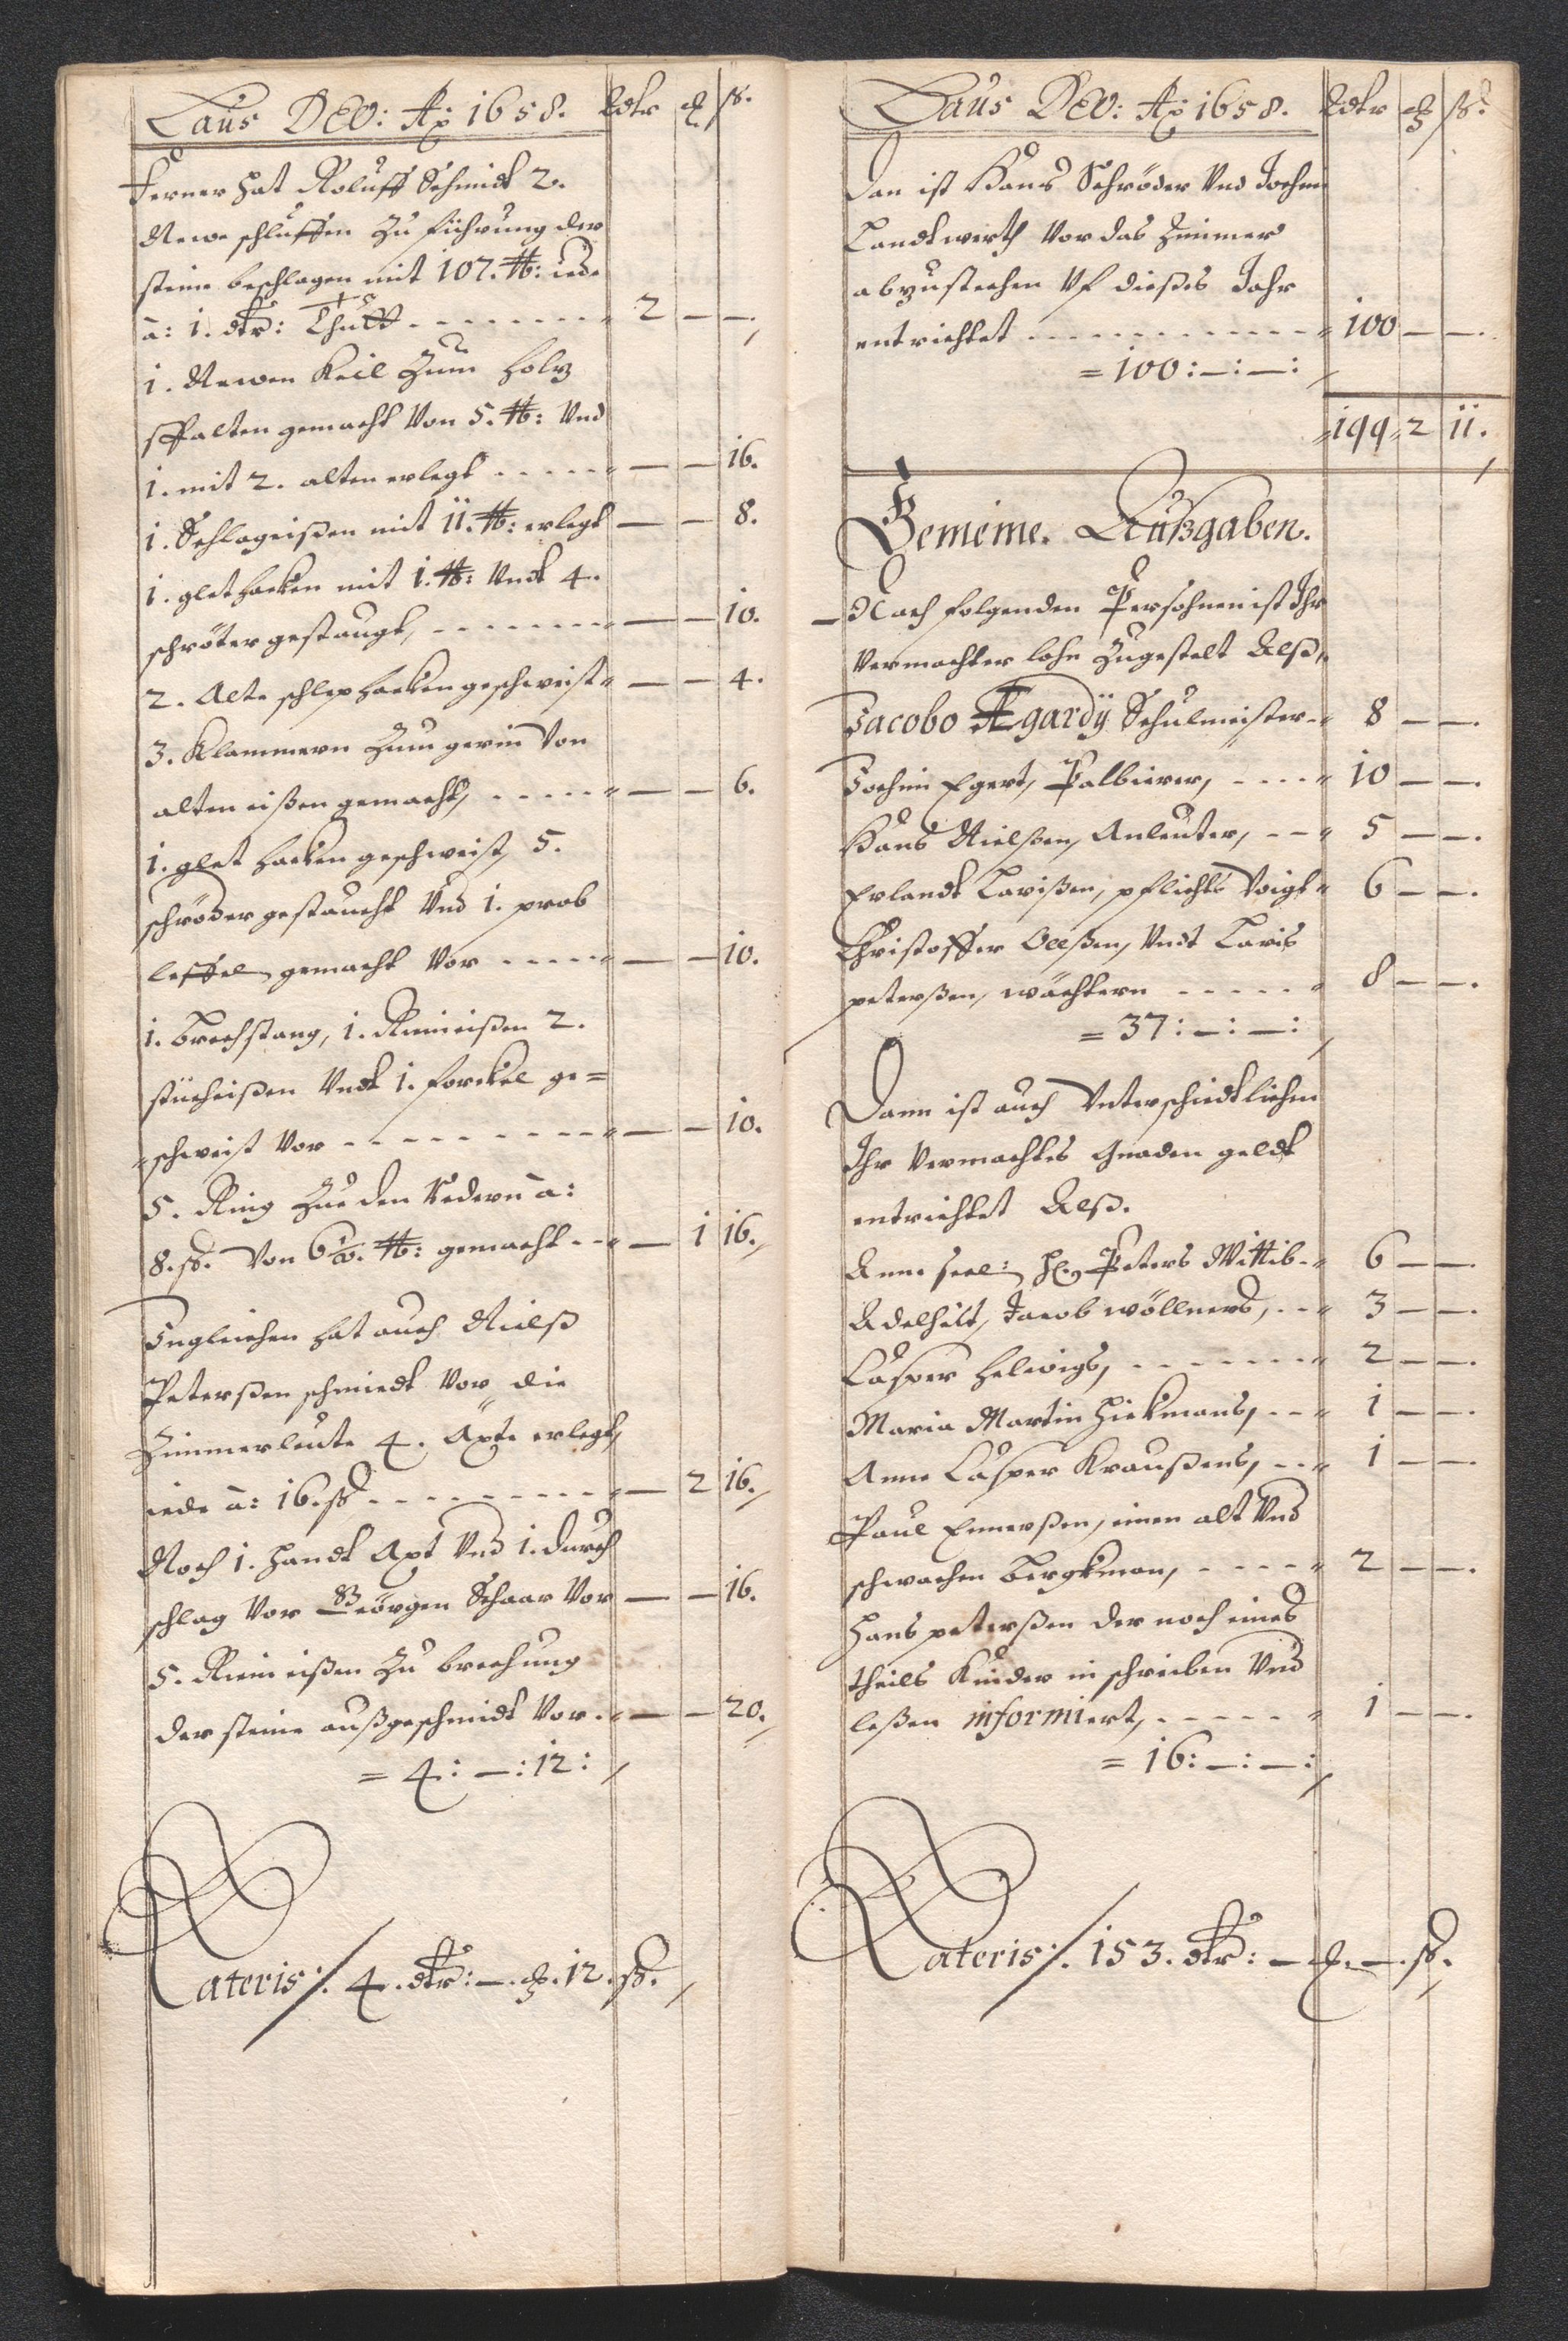 Laus DEO: Aο 1658. Rdtr ꝗ ß.
Ferner hat Roluff Schmidt 2.
Newe schluffen Zu führung der
steine beschlagen mit 107. ℔: iede
à: 1. dtr: Thutt - - - - - - - 2 — —.
1. Newen Keil Zum holtz
spalten gemacht Von 5. ℔: Vnd
1. mit 2. alten erlegt - - - - - — — 16.
1. Schlageißen mit 11. ℔: erlegt — — 8.
1. glethacken mit 1. ℔: Vndt 4.
schröter gestaugt, - - - - - - - — — 10.
2. Alte schlephacken geschweist — — 4.
3. Klammern Zum gerin Von
alten eißen gemacht, - - - - - — — 6.
1. glet hacken geschweist, 5.
schröder gestaucht Vnd 1. prob
leffel gemacht Vor - - - - - — — 10.
1. brechstang, 1. Rinneißen 2.
sticheißen Vndt 1. forckel ge=
schweist Vor - - - - - - - - - — — 10.
5. Ring Zue den Redern à:
8. ß. Von 6½. ℔: gemacht - - — 1 16.
Ingleichen hat auch Nielß
Peterßen schmiedt Vor die
Zimmerleute 4. Äxte erlegt,
iede à: 16. ß - - - - - - - - - — 2 16.
Noch 1. handt Axt Vnd 1. durch
schlag Vor Geörgen Schaar Vor — — 16.
5. Rinn eißen Zu brechung
der steine außgeschmidt Vor. — — 20.
= 4: —: 12:
Lateris /: 4. dtr: —. ꝗ. 12. ß.
Laus DEO: Aο 1658. Rdtr ꝗ ß.
Dan ist Hans Schröder Vnd Jochim
Landtwirth Vor das Zimmer
abzustechen Vf dießes Jahr
entrichtet - - - - - - - - - - - 100 — —.
= 100: —: —:
199 2 11.
Gemeine. Außgaben.
Nach folgenden Persohnen ist Ihr
Vermachter lohn Zugestelt Alß,
Jacobo Ægardÿ Schulmeister - 8 — —.
Jochim Egert, Palbierer, - - - - 10 — —.
Hans Nielßen, Anleuter, - - 5 — —.
Erlandt Larißen, pflichts Voigt 6 — —.
Christoffer Oelßen, Vndt Laris
peterßen, wächtern - - - - - 8 — —.
= 37: —: —:
Dann ist auch Vnterschiedtlichen
Ihr Vermachtes Gnaden geldt
entrichtet Alß.
Anne seel: H: Peters Wittib - 6 — —.
Adelheit, Jacob wöllners, - - 3 — —.
Casper helwigs, - - - - - - - 2 — —.
Maria Martin Hickmans, - - 1 — —.
Anne Casper Kraußens, - - 1 — —.
Paul Ennerßen, einen alt Vnd
schwachen Bergkman, - - - - 2 — —.
Hans peterßen der noch eines
theils Kinder in schreiben Vnd
leßen informiert, - - - - - 1 — —.
= 16: —: —:
Lateris /: 153. dtr: — ꝗ. —. ß.